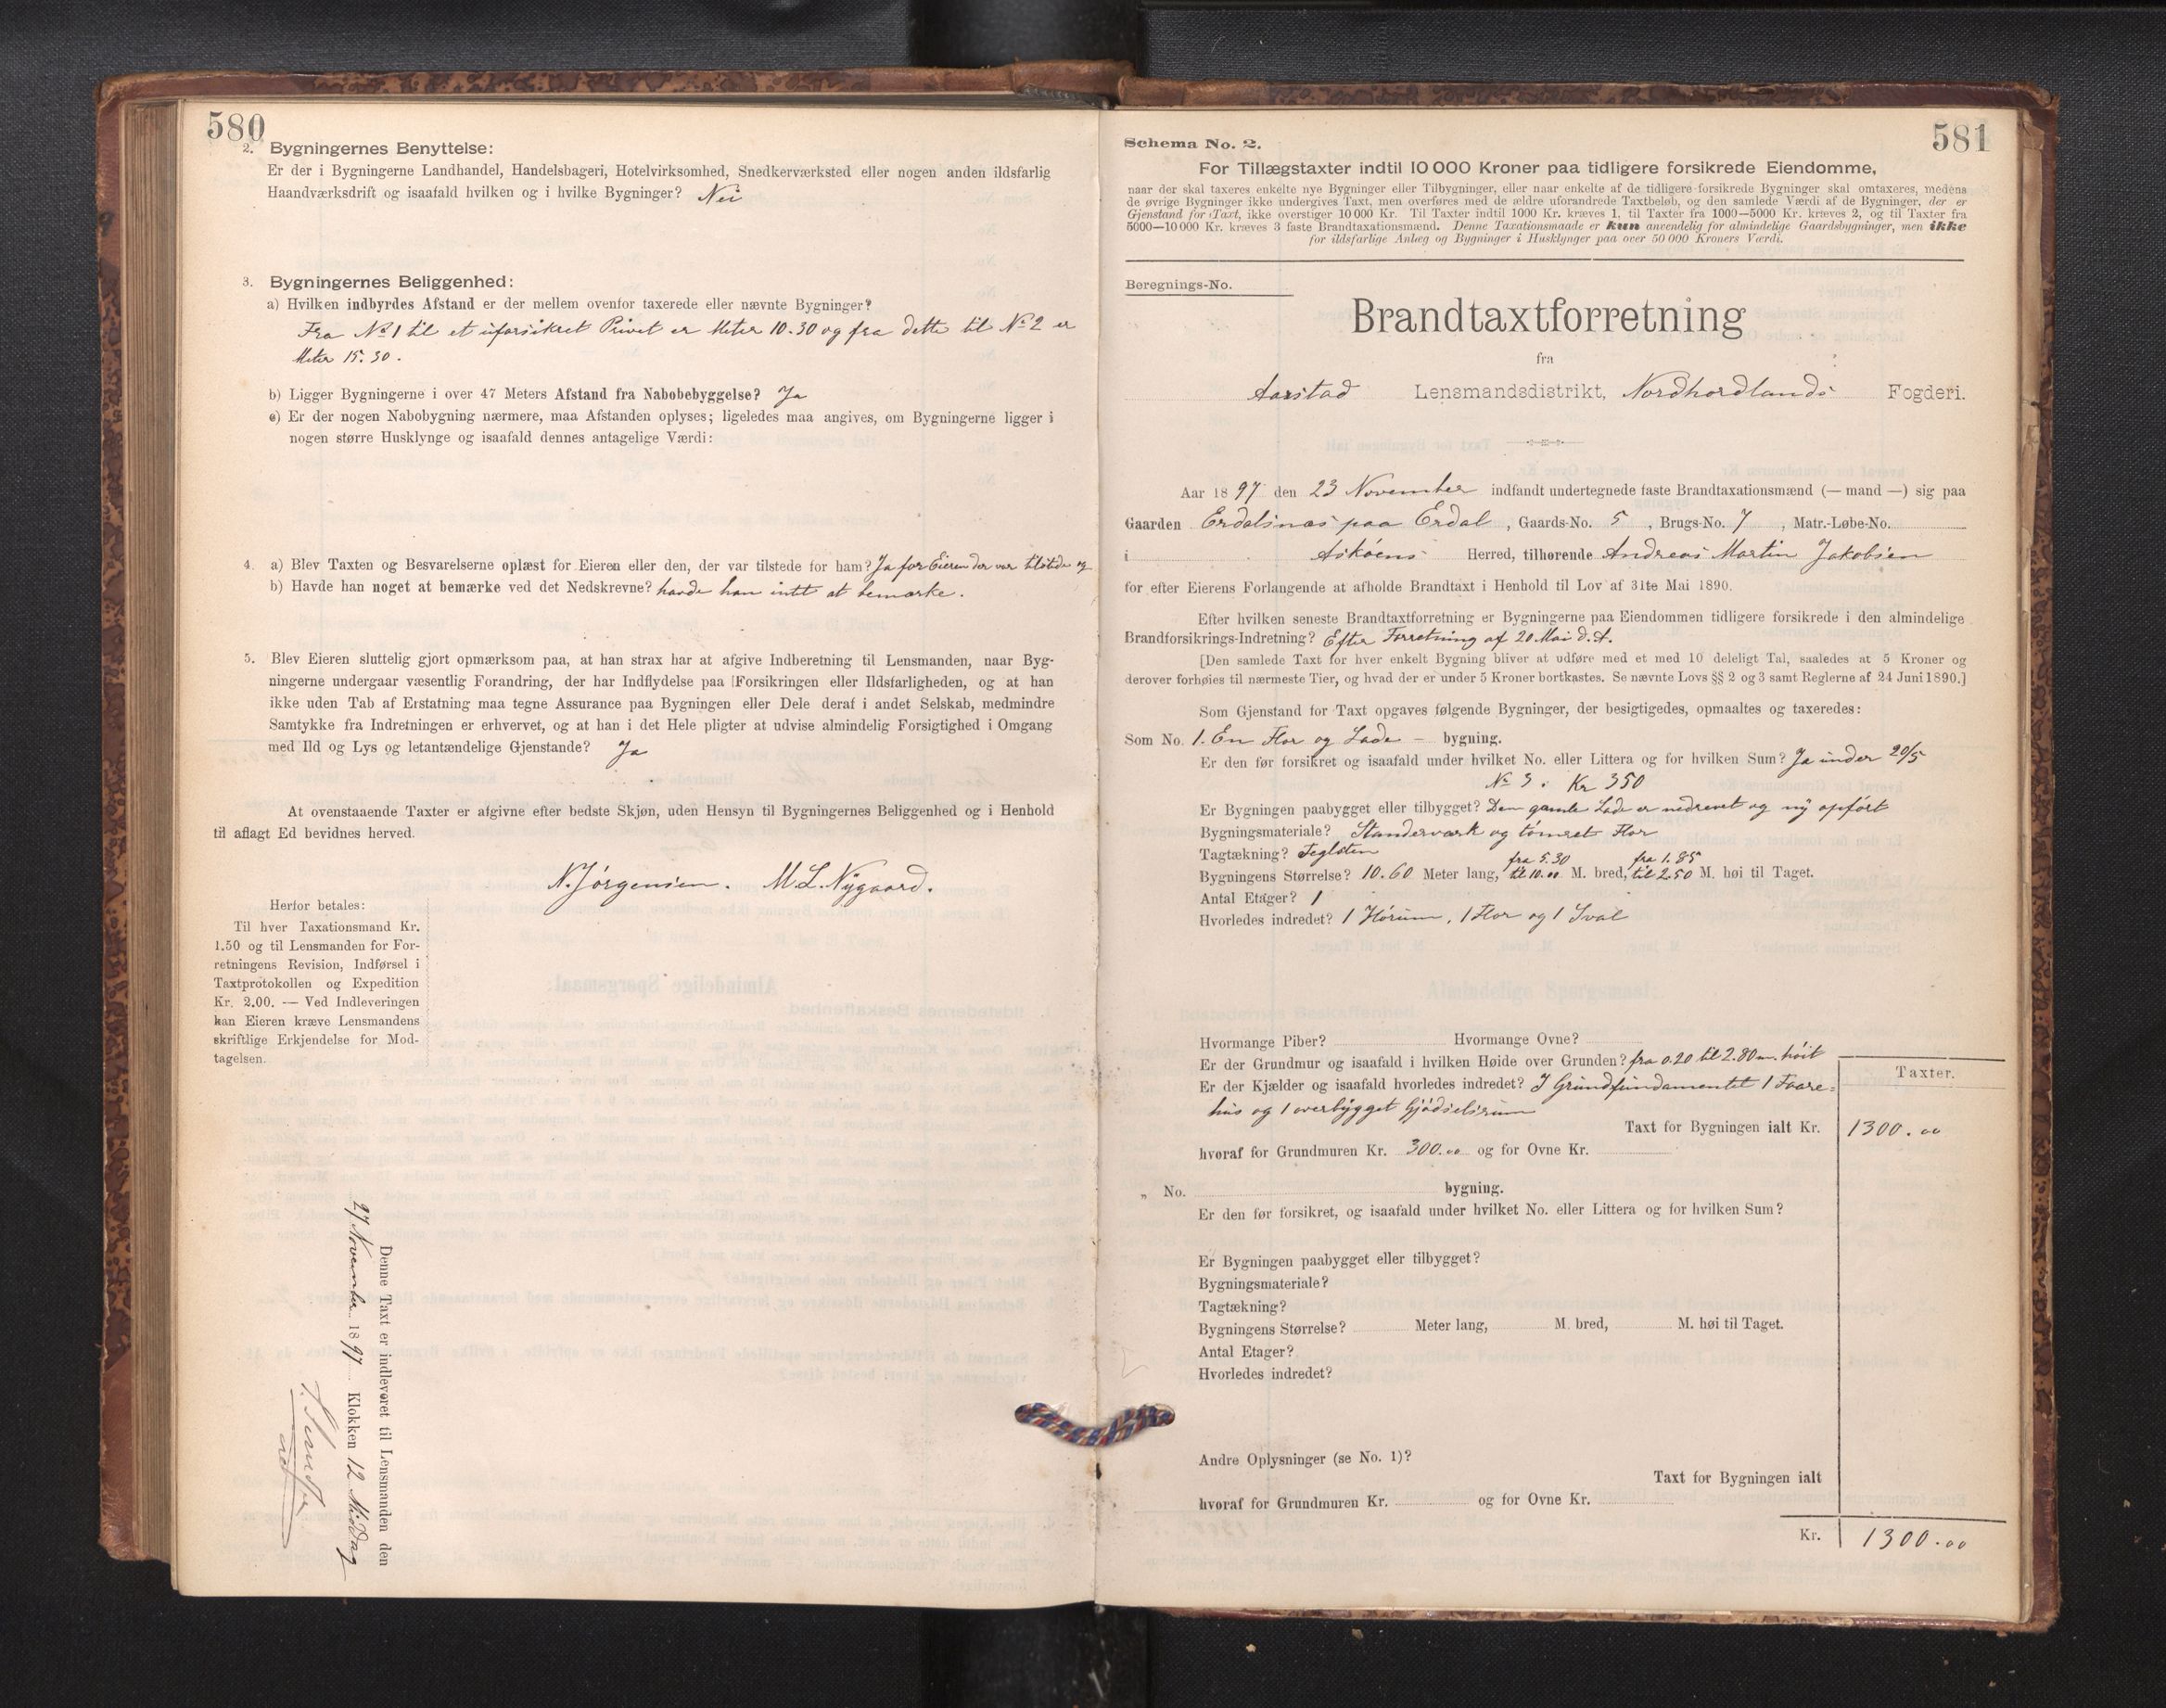 580
2. Bygningernes Benyttelse:
Er der i Bygningerne Landhandel, Handelsbageri, Hotelvirksomhed, Snedkerværksted eller nogen anden ildsfarlig
Haandværksdrift og isaafald hvilken og i hvilke Bygninger? Nei
3. Bygningernes Beliggenhed:
a) Hvilken indbyrdes Afstand er der mellem ovenfor taxerede eller nævnte Bygninger?
Fra No 1 til et uforsikret Privet er Meter 10.30 og fra dette til No 2 er
Meter 15.30.
b) Ligger Bygningerne i over 47 Meters Afstand fra Nabobebyggelse? Ja
c) Er der nogen Nabobygning nærmere, maa Afstanden oplyses; ligeledes maa angives, om Bygningerne ligger i
nogen større Husklynge og isaafald dennes antagelige Værdi:
4. a) Blev Taxten og Besvarelserne oplæst for Eieren eller den, der var tilstede for ham? Ja for Eieren der var tilstede og
b) Havde han noget at bemærke ved det Nedskrevne? havde han intet at bemærke.
5. Blev Eieren sluttelig gjort opmærksom paa, at han strax har at afgive Indberetning til Lensmanden, naar Byg-
ningerne undergaar væsentlig Forandring, der har Indflydelse paa Forsikringen eller Ildsfarligheden, og at han
ikke uden Tab af Erstatning maa tegne Assurance paa Bygningen eller Dele deraf i andet Selskab, medmindre
Samtykke fra Indretningen er erhvervet, og at han i det Hele pligter at udvise almindelig Forsigtighed i Omgang
med Ild og Lys og letantændelige Gjenstande? Ja
At ovenstaaende Taxter er afgivne efter bedste Skjøn, uden Hensyn til Bygningernes Beliggenhed og i Henhold
til aflagt Ed bevidnes herved.
N. Jørgensen. M. L. Nygaard.
Herfor betales:
Til hver Taxationsmand Kr.
1.50 og til Lensmanden for For-
retningens Revision, Indførsel i
Taxtprotokollen og Expedition
Kr. 2.00. — Ved Indleveringen
kan Eieren kræve Lensmandens
skriftlige Erkjendelse for Mod-
tagelsen.
Denne Taxt er indleveret til Lensmanden den
27 November 1897 Klokken 12 Middag
581
Schema No. 2.
For Tillægstaxter indtil 10 000 Kroner paa tidligere forsikrede Eiendomme,
naar der skal taxeres enkelte nye Bygninger eller Tilbygninger, eller naar enkelte af de tidligere forsikrede Bygninger skal omtaxeres, medens
de øvrige Bygninger ikke undergives Taxt, men overføres med de ældre uforandrede Taxtbeløb, og den samlede Værdi af de Bygninger, der er
Gjenstand for Taxt, ikke overstiger 10 000 Kr. Til Taxter indtil 1000 Kr. kræves 1, til Taxter fra 1000—5000 Kr. kræves 2, og til Taxter fra
5000—10 000 Kr. kræves 3 faste Brandtaxationsmænd. Denne Taxationsmaade er kun anvendelig for almindelige Gaardsbygninger, men ikke
for ildsfarlige Anlæg og Bygninger i Husklynger paa over 50 000 Kroners Værdi.
Beregnings-No.
Brandtaxtforretning
fra
Aarstad Lensmandsdistrikt, Nordhordlands Fogderi.
Aar 1897 den 23 November indfandt undertegnede faste Brandtaxationsmænd (— mand —) sig paa
Gaarden Erdalsnæs paa Erdal, Gaards-No. 5, Brugs-No. 7, Matr.-Løbe-No.
i Askøens Herred, tilhørende Andreas Martin Jakobsen
for efter Eierens Forlangende at afholde Brandtaxt i Henhold til Lov af 31te Mai 1890.
Efter hvilken seneste Brandtaxtforretning er Bygningerne paa Eiendommen tidligere forsikrede i den almindelige
Brandforsikrings-Indretning? Efter Forretning af 20 Mai d.A.
[Den samlede Taxt for hver enkelt Bygning bliver at udføre med et med 10 deleligt Tal, saaledes at 5 Kroner og
derover forhøies til nærmeste Tier, og hvad der er under 5 Kroner bortkastes. Se nævnte Lovs §§ 2 og 3 samt Reglerne af 24 Juni 1890.]
Som Gjenstand for Taxt opgaves følgende Bygninger, der besigtigedes, opmaaltes og taxeredes:
Som No. 1. En Flor og Lade — bygning.
Er den før forsikret og isaafald under hvilket No. eller Littera og for hvilken Sum? Ja under 20/5
No 3. Kr 350
Er Bygningen paabygget eller tilbygget? Den gamle Lade er nedrevet og ny opført
Bygningsmateriale? Standerværk og tømret Flor
Tagtækning? Teglsten
fra 5.30 fra 1.85
Bygningens Størrelse? 10.60 Meter lang, til 10.00 M. bred, til 2.50 M. høi til Taget.
Antal Etager? 1
Hvorledes indredet? 1 Hørum, 1 Flor og 1 Sval
Hvormange Piber? Hvormange Ovne?
Er der Grundmur og isaafald i hvilken Høide over Grunden? fra 0.20 til 2.80 m. høit
Er der Kjælder og isaafald hvorledes indredet? I Grundfundamentet 1 Faare-
hus og 1 overbygget Gjødselsrum
Taxter.
Taxt for Bygningen ialt Kr. 1300.00
hvoraf for Grundmuren Kr. 300.00 og for Ovne Kr.
„ No. bygning.
Er den før forsikret, og isaafald under hvilket No. eller Littera og for hvilken Sum?
Er Bygningen paabygget eller tilbygget?
Bygningsmateriale?
Tagtækning?
Bygningens Størrelse? Meter lang, M. bred, M. høi til Taget.
Antal Etager?
Hvorledes indredet?
Andre Oplysninger (se No. 1)?
Taxt for Bygningen ialt
hvoraf for Grundmuren Kr. og for Ovne Kr.
Kr. 1300.00